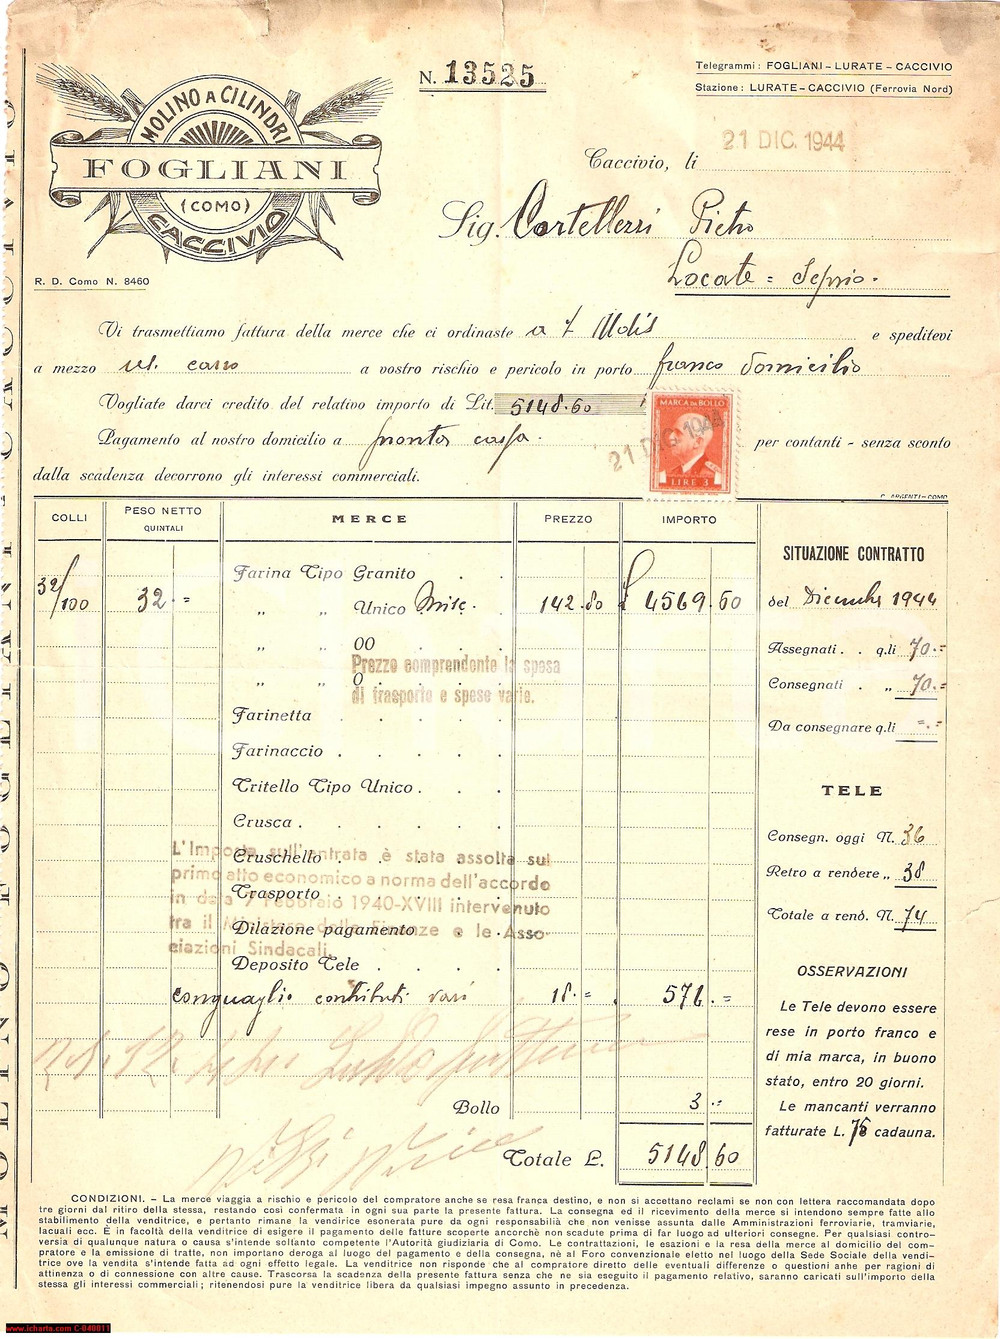 MOLINO A CILINDRI
FOGLIANI
(COMO)
CACCIVIO
R. D. Como N. 8460
N. 13525
Telegrammi: FOGLIANI - LURATE - CACCIVIO
Stazione: LURATE - CACCIVIO (Ferrovia Nord)
21 DIC. 1944
Caccivio, li
Sig. Pietro
Locate = Seprio.
Vi trasmettiamo fattura della merce che ci ordinaste a e speditevi
a mezzo a vostro rischio e pericolo in porto franco domicilio
Vogliate darci credito del relativo importo di Lit. 5148.60
MARCA DA BOLLO
LIRE 3
21 DIC 1944
Pagamento al nostro domicilio a pronta cassa. per contanti - senza sconto
dalla scadenza decorrono gli interessi commerciali.
C. ARGENTI - COMO
COLLI PESO NETTO QUINTALI MERCE PREZZO IMPORTO
Farina Tipo Granito . .
32/100 32 . = „ „ Unico . 142.80 £ 4569.60
„ „ 00 . . .
Prezzo comprendente la spesa
di trasporto e spese varie.
„ „ 0 . . . .
Farinetta . . . . .
Farinaccio . . . . .
Tritello Tipo Unico . . .
Crusca . . . . . .
Cruschello . . . . .
L'Imposta sull'entrata è stata assolta sul
primo atto economico a norma dell'accordo
in data 7 Febbraio 1940-XVIII intervenuto
tra il Ministero delle Finanze e le Asso-
ciazioni Sindacali.
Trasporto . . . . .
Dilazione pagamento . .
Deposito Tele . . . .
conguaglio contributi vari 18. = 576. =
Bollo 3 . =
Totale £. 5148 60
SITUAZIONE CONTRATTO
del Dicembre 1944
Assegnati . . q.li 70.=
Consegnati . „ 70.=
Da consegnare q.li =.=
TELE
Consegn. oggi N. 36
Retro a rendere „ 38
Totale a rend. N. 74
OSSERVAZIONI
Le Tele devono essere
rese in porto franco e
di mia marca, in buono
stato, entro 20 giorni.
Le mancanti verranno
fatturate L. 75 cadauna.
CONDIZIONI. - La merce viaggia a rischio e pericolo del compratore anche se resa franca destino, e non si accettano reclami se non con lettera raccomandata dopo
tre giorni dal ritiro della stessa, restando così confermata in ogni sua parte la presente fattura. La consegna ed il ricevimento della merce si intendono sempre fatte allo
stabilimento della venditrice, e pertanto rimane la vendirice esonerata pure da ogni responsabilià che non venisse assunta dalle Amministrazioni ferroviarie, tramviarie,
lacuali ecc. È in facoltà della venditrice di esigere il pagamento delle fatture scoperte ancorchè non scadute prima di far luogo ad ulteriori consegne. Per qualsiasi contro-
versia di qualunque natura o causa s'intende soltanto competente l'Autorità giudiziaria di Como. Le contrattazioni, le esazioni e la resa della merce al domicilio del com-
pratore e la emissione di tratte, non importano deroga al luogo del pagamento e della consegna, nè al Foro convenzionale eletto nel luogo della Sede Sociale della vendi-
trice ove la vendita s'intende fatta ad ogni effetto legale. La venditrice non risponde che al compratore diretto delle eventuali differenze o questioni anhe per ragioni di
attinenza o di connessione con altre cause. Trascorsa la scadenza della presente fattura senza che ne sia eseguito il pagamento relativo, saranno caricati sull'importo della
stessa gli interessi commerciali; ritenendosi pure la venditrice libera da qualsiasi impegno assunto in precedenza.
www.icharta.com C-040011